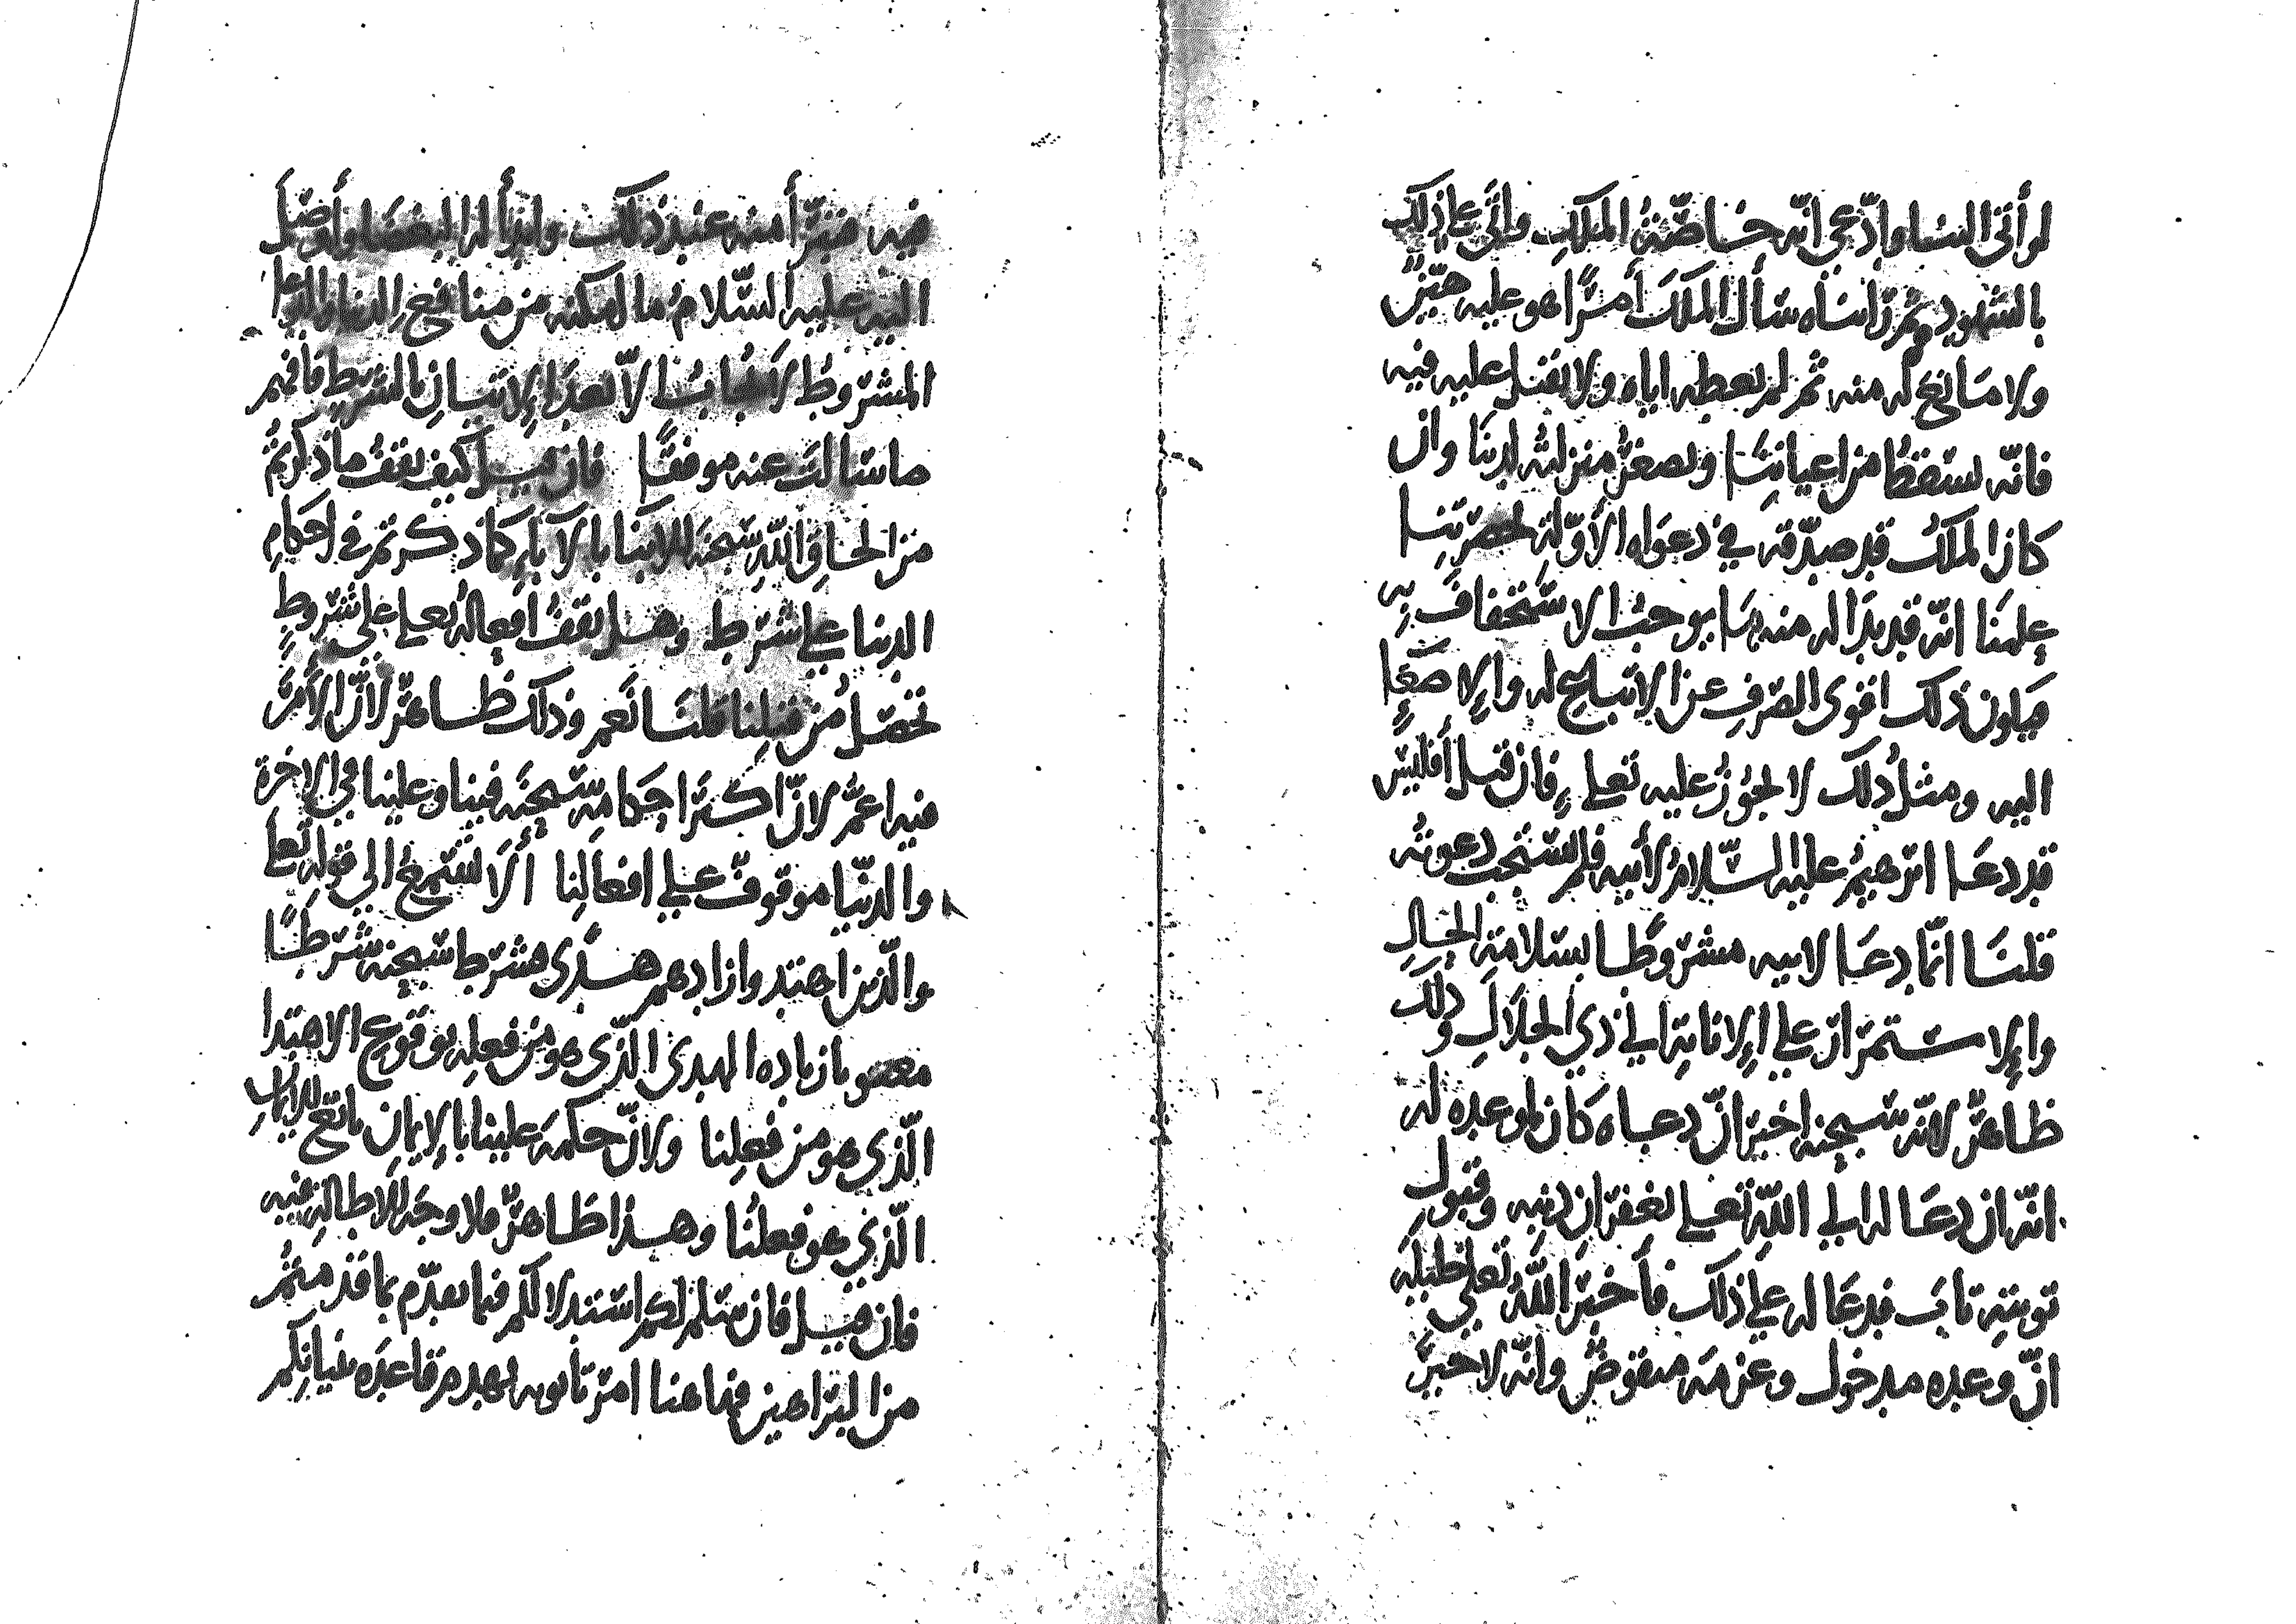 لو أتى الينا وادّعى انّه خاصّة الملك واتى على ذلك
بالشهود ثمّ رايناه سأل الملك أمرًا هو عليه هيّن
ولا مانع له منه ثم لم يعطه اياه ولا يقبل عليه فيه
فانّه يسقط من اعياننا وتصغر منزلته لدينا وان
كان الملك قد صدّقه في دعواه الأوّلة لحضرتنا
علمنا انّه قد بدا له منه ما يوجب الاستخفاف به
فيكون ذلك اقوى الصرف عن الاتباع له والإصغاء
اليه ومثل ذلك لا يجوز عليه تعلى فان قيل أفليس
قد دعا ابرهيم عليه السّلام لأبيه فلم يستجب دعوته
قلنا انّما دعا لابيه مشروطا بسلامة الحال
والإستمرار على الإنابة الى ذي الجلال وذلك
ظاهر لانّه سبحنه اخبر انّ دعاه كان لموعده له
انّه ان دعا له الى اللّه تعلى بغفران ذنبه وقبول
توبته تاب فدعا له على ذلك فأخبر اللّه تعلى خليله
انّ وعده مدخول وعزمه منقوض وانّه لا خير
فيه فتبرّأ منه عند ذلك وابدأ له البغضا وأصل
اليه عليه السّلام ما امكنه من منافع الدنيا والدعا
المشروط لا يجاب الّا بعد الإتيان بالشرط فافهم
ما سالت عنه موفقًا فان قيل كيف يقف ما ذكرتم
من الحاق اللّه سبحنه للابنا بالآباء كما ذكرتم في احكام
الدنيا على شرط وهل يقف افعاله تعلى على شروط
تحصل من قبلنا قلنا نعم وذلك ظاهر لأنّ الأمر
فيه اعمّ لانّ اكثر احكامه سبحنه فينا وعلينا في الاخرة
والدنيا موقوف على افعالنا ألا تستمع الى قوله تعلى
والّذين اهتدوا زادهم هدًى فشرط سبحنه شرطًا
معنويا زيادة الهدى الّذى هو من فعله بوقوع الاهتدا
الّذي هو من فعلنا ولانّ حكمه علينا بالإيمان تابع للإيمان
الّذي هو فعلنا وهذا ظاهر فلا وجه للاطالة فيه
فان قيل فان سلم لكم استدلالكم فيما تقدّم بما قدمتم
من البراهين فهاهنا امر تاتون به يهدم قاعدة بنيانكم